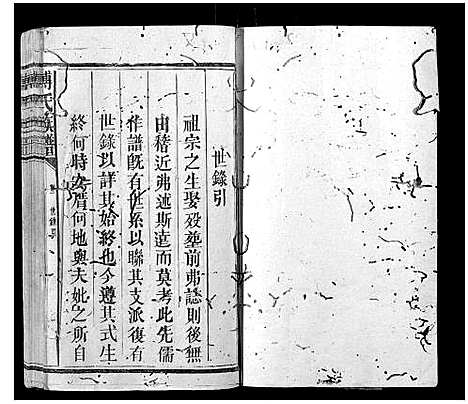 世錄引
祖宗之生娶歿葬前弗誌則後無
由稽近弗述斯遠而莫考此先儒
作譜既有世系以聯其支派復有
世錄以詳其始終也今遵其式生
終何時安厝何地與夫妣之所自
氏族譜
世錄引